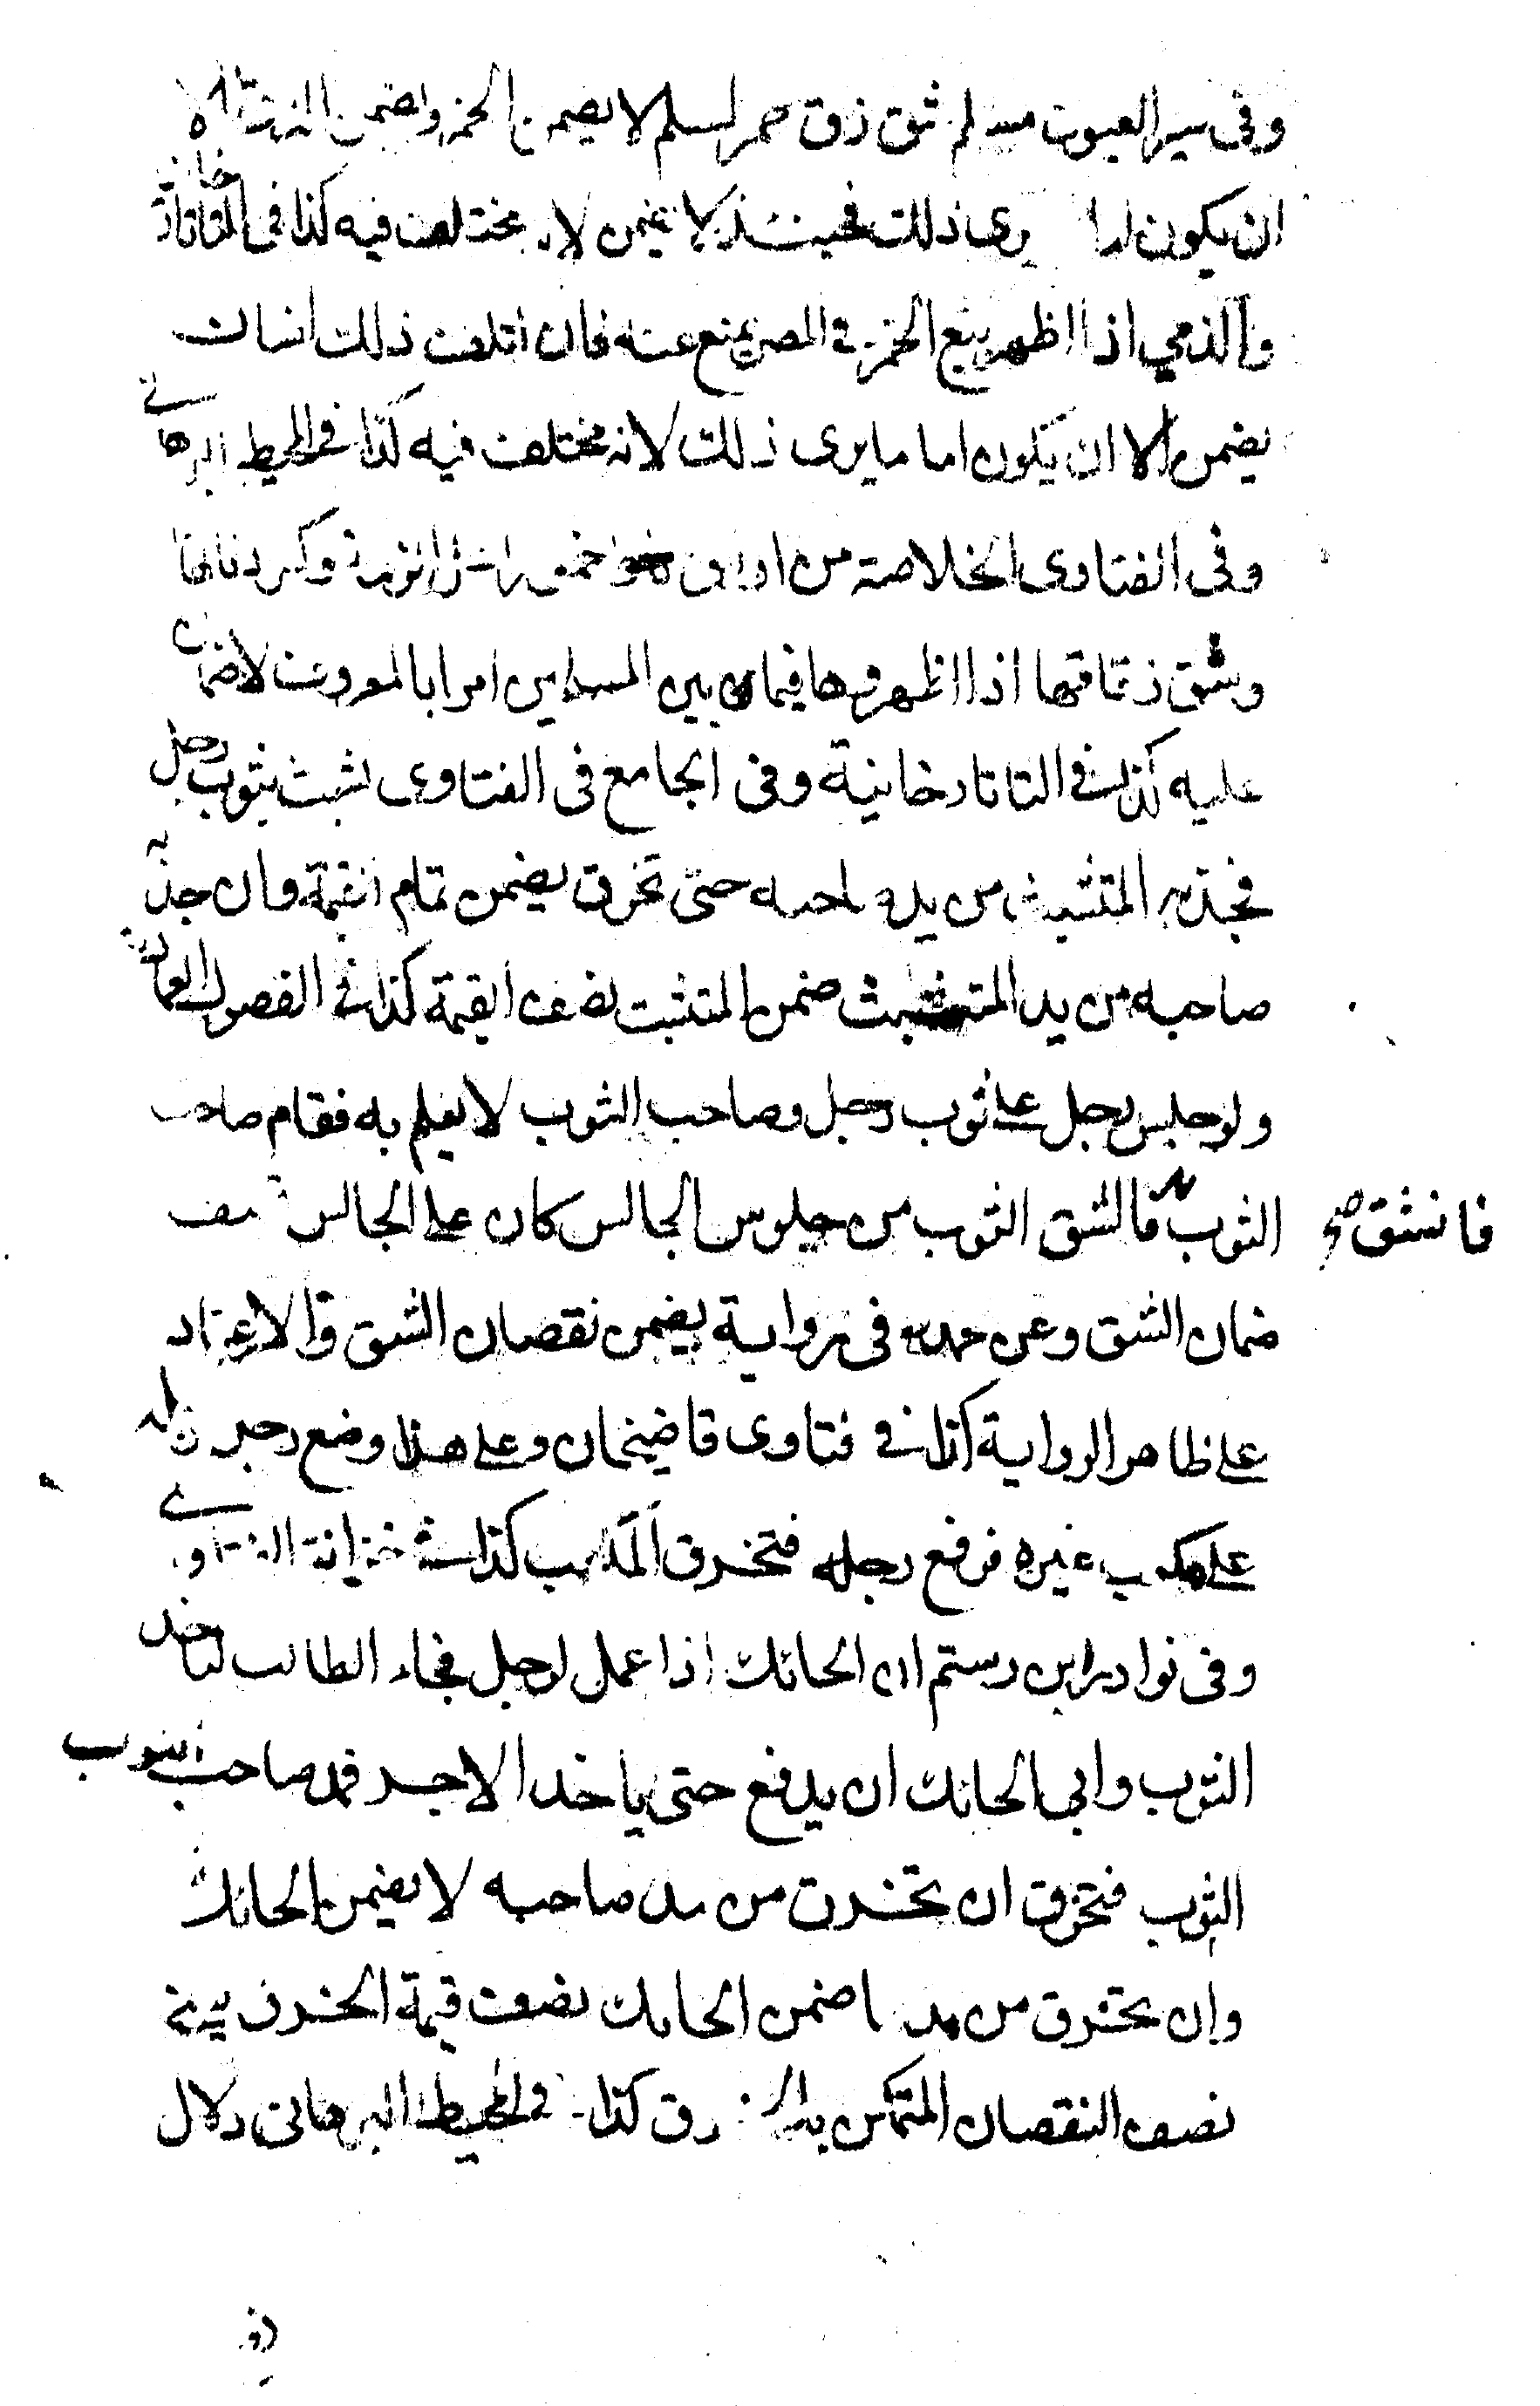 وفى سير العيون مسلم شق زق خمر لمسلم لا يضمن الخمر ويضمن الزق الا
ان يكون اماما يرى ذلك فحينئذ لا يضمن لانه مختلف فيه كذا فى التاتارخانية
والذمي اذا اظهر بيع الخمر في المصر يمنع عنه فان اتلف ذلك انسان
يضمن الا ان يكون اماما يرى ذلك لانه مختلف فيه كذا فى المحيط البرهانى
وفى الفتاوى الخلاصة من اراق خمور اهل الذمة وكسر دنانها
وشق زقاقها اذا اظهروها فيما بين المسلمين امرا بالمعروف لا ضمان
عليه كذا في التاتارخانية وفى الجامع فى الفتاوى تشبث بثوب رجل
فجذبه المتشبث من يد صاحبه حتى تخرق يضمن تمام القيمة وان جذبه
صاحبه من يد المتشبث ضمن المتشبث نصف القيمة كذا في الفصول العمادية
ولو جلس رجل على ثوب رجل وصاحب الثوب لا يعلم به فقام صاحب
الثوب فانشق الثوب من جلوس الجالس كان على الجالس نصف
فانشق صح
ضمان الشق وعن محمد فى رواية يضمن نقصان الشق والاعتماد
على ظاهر الرواية كذا في فتاوى قاضيخان وعلى هذا وضع رجل رجله
على مكعب غيره فرفع رجله فتخرق المكعب كذا في خزانة الفتاوى
وفى نوادر ابن رستم ان الحائك اذا عمل لرجل فجاء الطالب لياخذ
الثوب وابى الحائك ان يدفع حتى ياخذ الاجر فمد صاحب الثوب
الثوب فتخرق ان تخرق من يد صاحبه لا يضمن الحائك
وان تخرق من يدهما ضمن الحائك نصف قيمة الخرق يعنى
نصف النقصان المتمكن بالخرق كذا فى المحيط البرهانى دلال